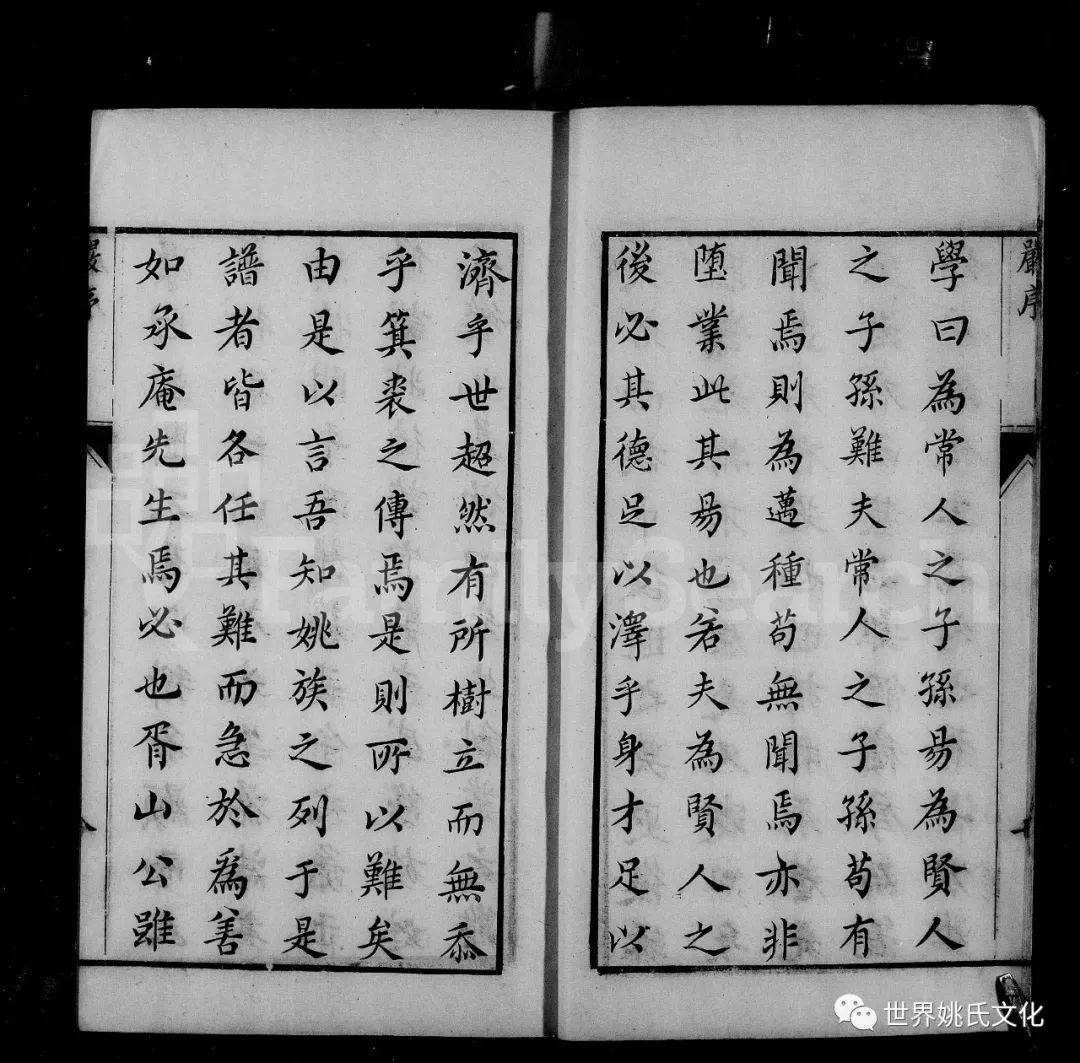 嚴序
學曰為常人之子孫易為賢人
之子孫難夫常人之子孫苟有
聞焉則為邁種苟無聞焉亦非
墮業此其易也若夫為賢人之
後必其德足以澤乎身才足以
濟乎世超然有所樹立而無忝
乎箕裘之傳焉是則所以難矣
由是以言吾知姚族之列于是
譜者皆各任其難而急於為善
如承庵先生焉必也胥山公雖
FamilySearch
世界姚氏文化